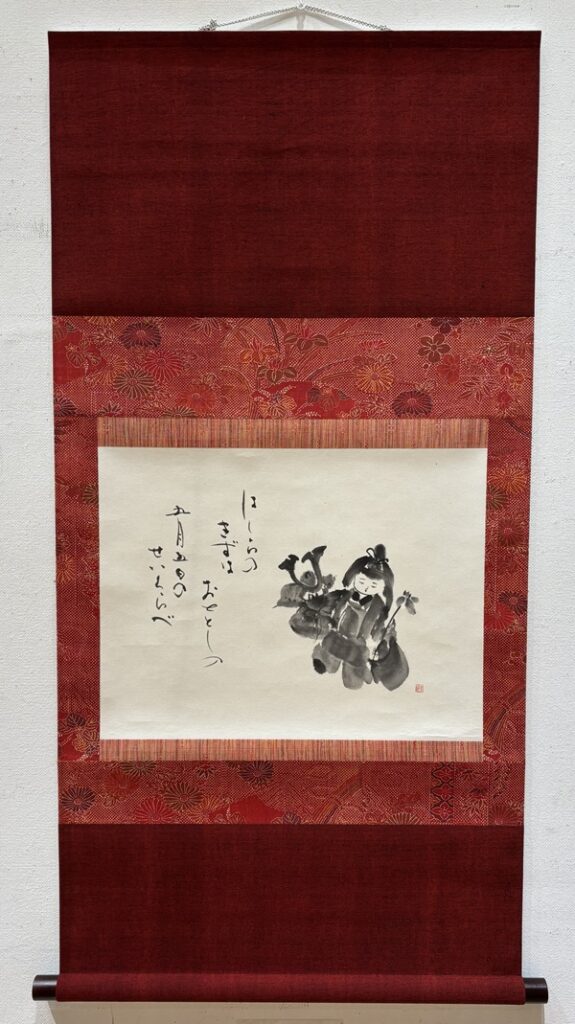 はしらの
きずは
おととしの
五月五日の
せいくらべ